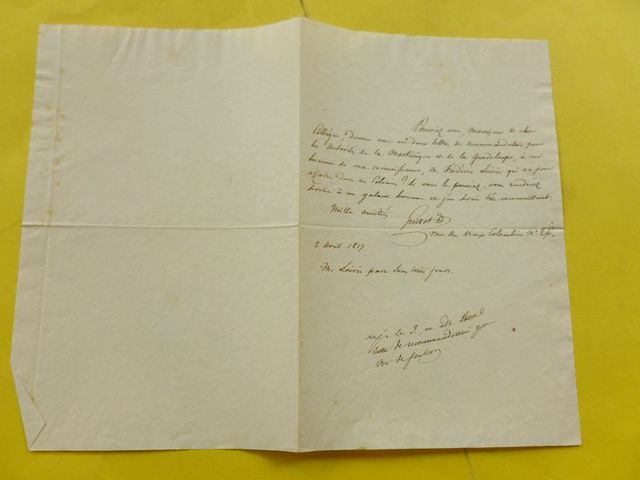 Pourriez vous, Monsieur et cher
Collègue, donner une ou deux lettres de recommandation pour
les Autorités de la Martinique et de la Guadeloupe, à un
homme de ma connaissance, M. Isidore qui va pour
affaires dans ces Colonies? Si vous le pouviez, vous rendriez
service à un galant homme et j'en serois très reconnaissant.
Mille amitiés
Guizot
rue du Vieux Colombier N°
2 avril 1817
M. part sous trois jours.
le 3, en
lettre de recommandation
Mr de